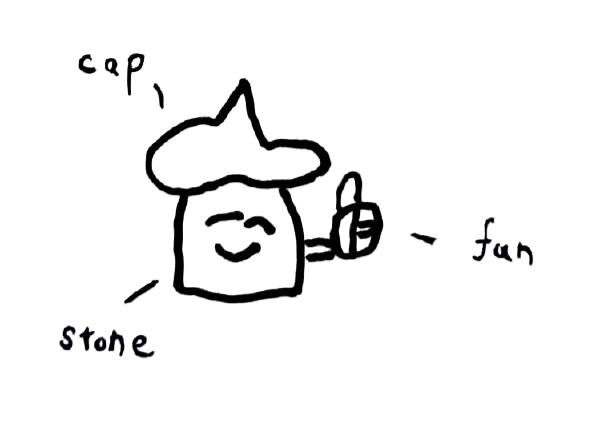 cap
fun
stone